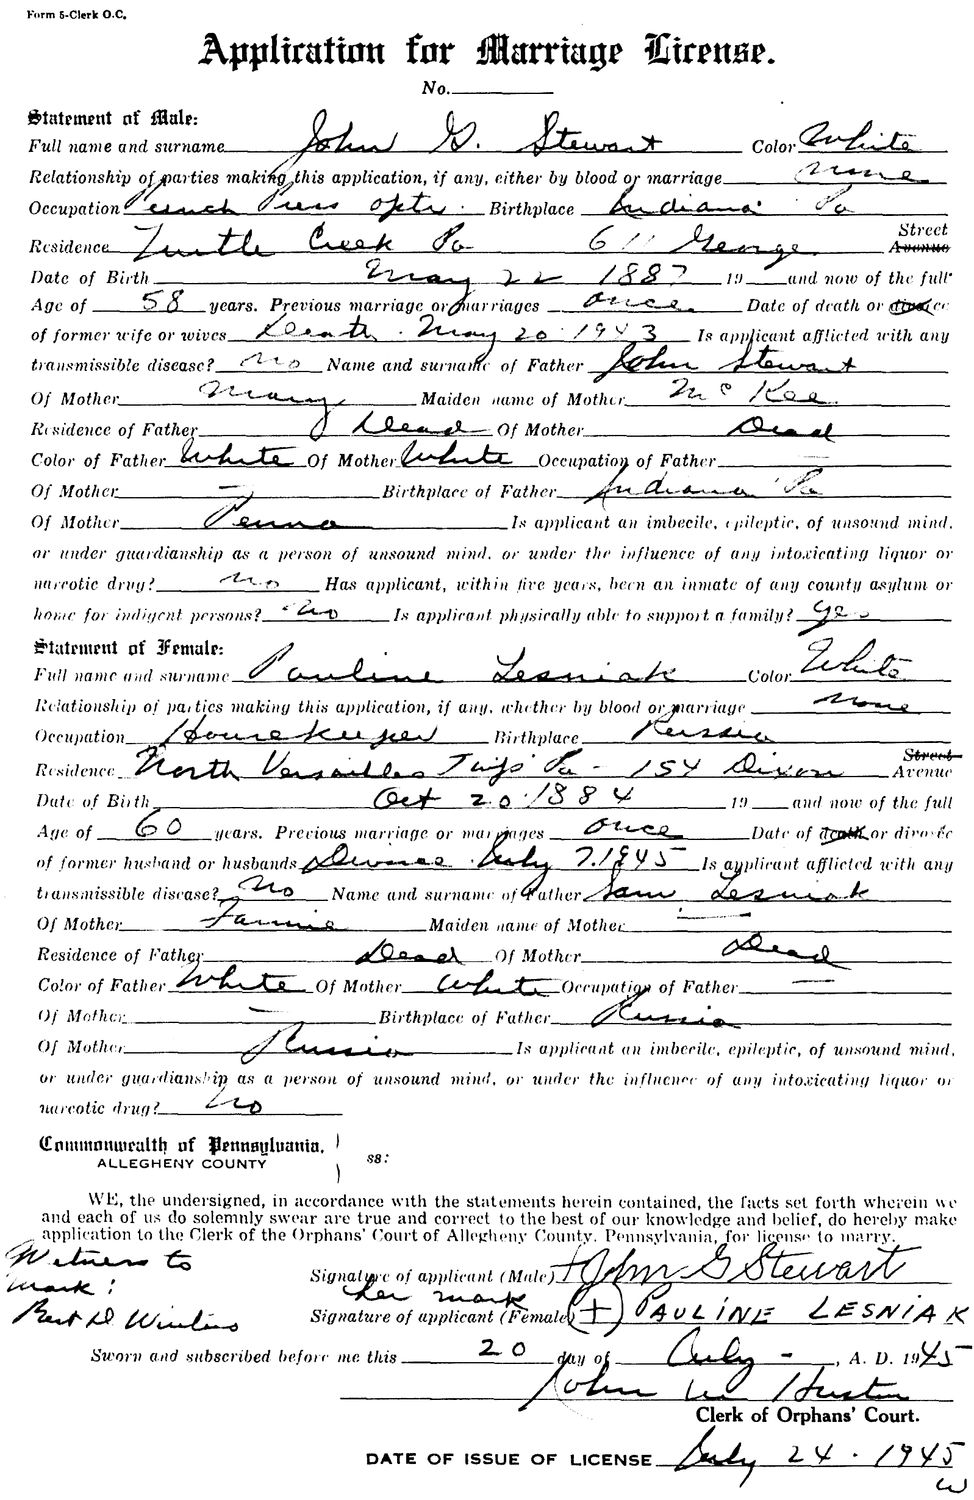 Form 5-Clerk O.C.
Application for Marriage License.
No.
Statement of Male:
Full name and surname John G. Stewart Color White
Relationship of parties making this application, if any, either by blood or marriage none
Occupation Punch Press optr. Birthplace Indiana Pa
Street
Residence Turtle Creek Pa 611 George Avenue
Date of Birth May 22 1887 19 and now of the full
Age of 58 years. Previous marriage or marriages once Date of death or divorce
of former wife or wives Death. May 20 1943 Is applicant afflicted with any
transmissible disease? no Name and surname of Father John Stewart
Of Mother Mary Maiden name of Mother McKee
Residence of Father Dead Of Mother Dead
Color of Father White Of Mother White Occupation of Father —
Of Mother — Birthplace of Father Indiana Pa
Of Mother Penna Is applicant an imbecile, epileptic, of unsound mind,
or under guardianship as a person of unsound mind, or under the influence of any intoxicating liquor or
narcotic drug? no Has applicant, within five years, been an inmate of any county asylum or
home for indigent persons? no Is applicant physically able to support a family? yes
Statement of Female:
Full name and surname Pauline Lesniak Color White
Relationship of parties making this application, if any, whether by blood or marriage none
Occupation Housekeeper Birthplace Russia
Street
Residence North Versailles Twp Pa - 154 Dixon Avenue
Date of Birth Oct 20 1884 19 and now of the full
Age of 60 years. Previous marriage or marriages once Date of death or divorce
of former husband or husbands Divorce July 7. 1945 Is applicant afflicted with any
transmissible disease? no Name and surname of Father Sam Lesniak
Of Mother Fannie Maiden name of Mother —
Residence of Father Dead Of Mother Dead
Color of Father White Of Mother White Occupation of Father —
Of Mother — Birthplace of Father Russia
Of Mother Russia Is applicant an imbecile, epileptic, of unsound mind,
or under guardianship as a person of unsound mind, or under the influence of any intoxicating liquor or
narcotic drug? no
Commonwealth of Pennsylvania,
ALLEGHENY COUNTY ss:
WE, the undersigned, in accordance with the statements herein contained, the facts set forth wherein we
and each of us do solemnly swear are true and correct to the best of our knowledge and belief, do hereby make
application to the Clerk of the Orphans' Court of Allegheny County, Pennsylvania, for license to marry.
Witness to
mark:
Bert D
Signature of applicant (Male) + John G Stewart
her mark
Signature of applicant (Female) (+) PAULINE LESNIAK
Sworn and subscribed before me this 20 day of July -, A. D. 1945
John M Huston
Clerk of Orphans' Court.
DATE OF ISSUE OF LICENSE July 24 . 1945
W